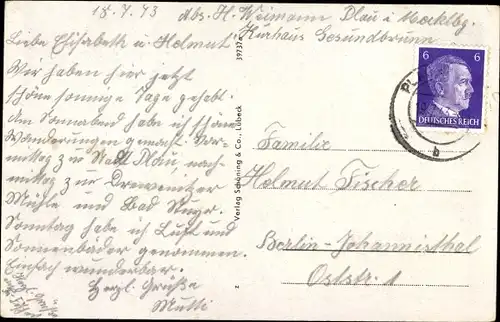 15.7.43 Abs. H. Weimann Plau i Mecklbg.
Kurhaus Gesundbrunn
Liebe Elisabeth u. Helmut
Wir haben hier jetzt
schöne sonnige Tage gehabt.
Am Sonnabend habe ich schöne
Wanderungen gemacht. Vor-
mittag zu Stadt Plau, nach-
mittag zur
Mühle und Bad
Sonntag habe ich Luft und
Sonnenbäder genommen.
Einfach wunderbar.
Herzl. Grüße
Mutti
39737
Verlag Schöning & Co., Lübeck
6 6
DEUTSCHES REICH
b
Familie
Helmut Fischer
Berlin-Johannisthal
Oststr. 1